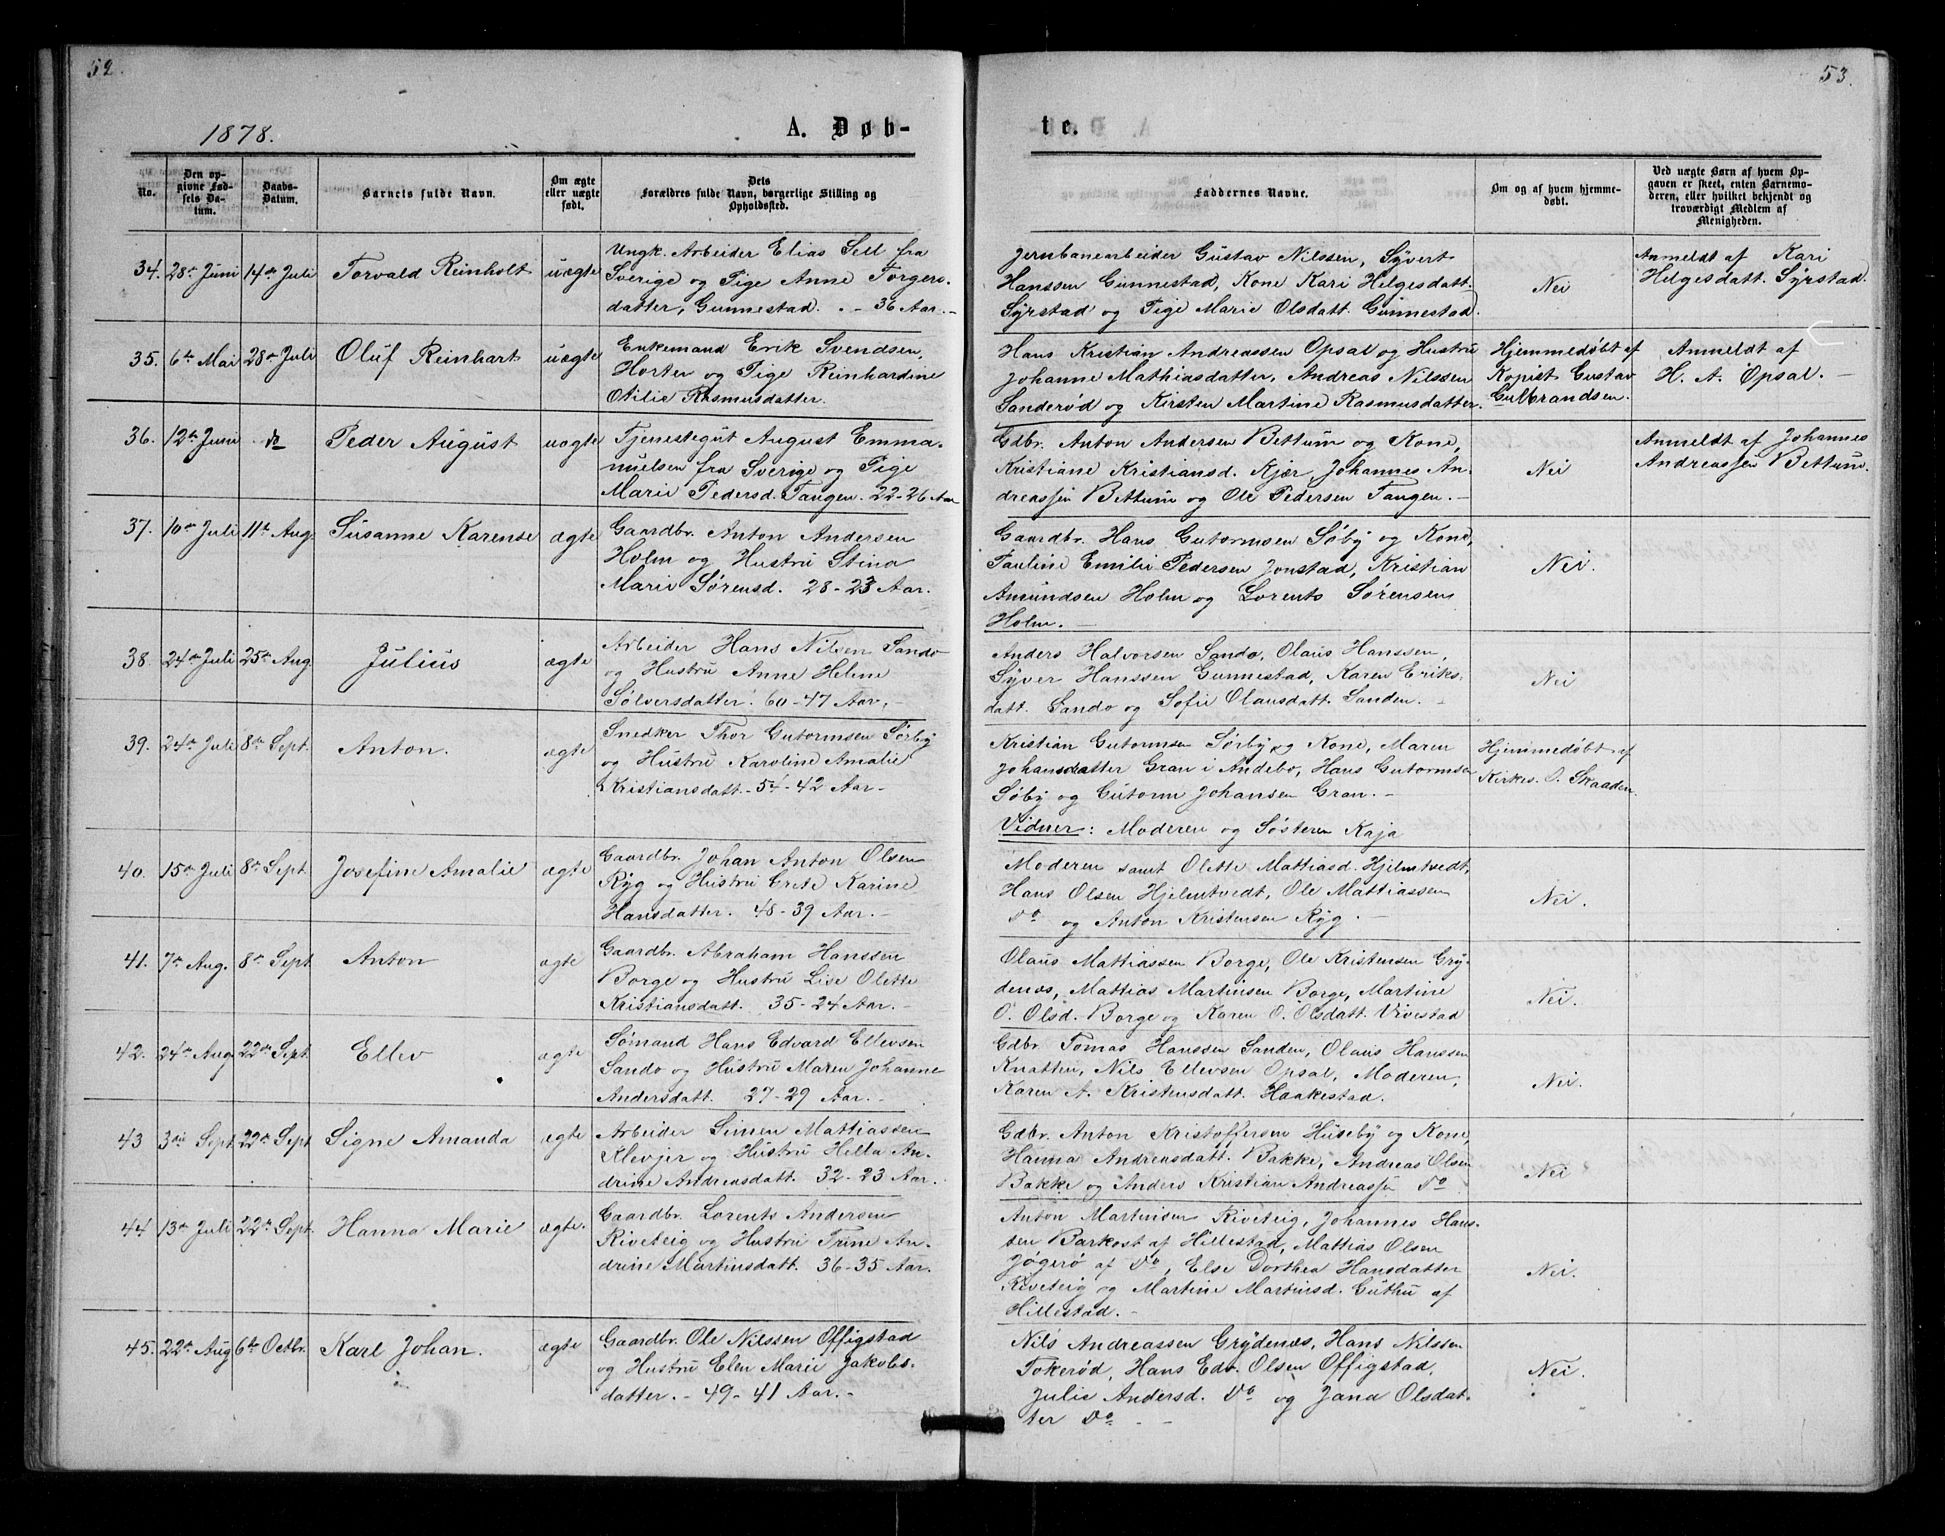 52.
1878.
A. Døb-
No.
Den op-
givne Fød-
sels Da-
tum.
Daabs-
Datum.
Barnets fulde Navn.
Om ægte
eller uægte
født.
Dets
Forældres fulde Navn, borgerlige Stilling og
Opholdssted.
34. 28de Juni 14de Juli Torvald Reinholt uægte
Ungk. Arbeider Elias Sell fra
Sverige og Pige Anne Torgers-
datter, Gunnestad. - 36 Aar.-
35. 6te Mai 28de Juli Oluf Reinhart uægte
Enkemand Erik Svendsen,
Horten og Pige Reinhardine
Otilie Rasmusdatter.
36. 12te Juni do Peder August uægte
Tjenestegut August Emma-
nuelsen fra Sverige og Pige
Marie Pedersd. Tangen. 22-26 Aar
37. 10de Juli 11te Aug. Susanne Karense ægte
Gaardbr. Anton Andersen
Holm og Hustru Stina
Marie Sørensd. 28-23 Aar.
38. 24de Juli 25de Aug. Julius ægte
Arbeider Hans Nilsen Sando
og Hustru Anne Helene
Sølversdatter. 60-47 Aar.-
39. 24de Juli 8de Sept. Anton. ægte
Snedker Thor Gutormsen Sørby
og Hustru Karoline Amalie
Kristiansdatt.- 54-42 Aar-
40. 15de Juli 8de Sept. Josefine Amalie ægte
Gaardbr. Johan Anton Olsen
Ryg og Hustru Grete Karine
Hansdatter. 48-39 Aar.-
41. 7de Aug. 8de Sept. Anton ægte
Gaardbr. Abraham Hanssen
Borge og Hustru Lise Olette
Kristiansdatt. 35-24 Aar.-
42. 24de Aug. 22de Sept. Ellev ægte
Sømand Hans Edvard Ellevsen
Sando og Hustru Maren Johanne
Andersdatt. 27-29 Aar.-
43 3die Sept. 22de Sept Signe Amanda ægte
Arbeider Simen Mattiassen
Klevjer og Hustru Hella An-
drine Andreasdatt. 32-23 Aar.
44 13de Juli 22de Sept. Hanna Marie ægte.
Gaardbr. Lorents Andersen
Riveteig og Hustru Trine An-
drine Martinsdatt. 36-35 Aar.
45. 22de Aug 6te Octbr. Karl Johan. ægte
Gaardbr. Ole Nilssen Offigstad
og Hustru Elen Marie Jakobs-
datter.- 49-41 Aar.-
53.
te.
Faddernes Navne.
Om og af hvem hjemme-
døbt.
Ved uægte Børn af hvem Op-
gaven er skeet, enten Barnemo-
deren, eller hvilket bekjendt og
troværdigt Medlem af
Menigheden.
Jernbanearbeider Gustav Nilssen, Syvert
Hanssen Gunnestad, Kone Kari Helgesdatt.
Syrstad og Pige Marie Olsdatt. Gunnestad.
Nei
Anmeldt af Kari
Helgesdatt. Syrstad.
Hans Kristian Andreassen Opsal og Hustru
Johanne Mathiasdatter, Andreas Nilssen
Sanderød og Kirsten Martine Rasmusdatter.
Hjemmedøbt af
Kopist Gustav
Gulbrandsen.
Anmeldt af
H. A. Opsal.-
Gdbr. Anton Andersen Bettum og Kone,
Kristiane Kristiansd. Kjær, Johannes An-
dreassen Bettum og Ole Pedersen Tangen.-
Nei
Anmeldt af Johannes
Andreassen Bettum.
Gaardbr. Hans Gutormsen Søby og Kone,
Pauline Emilie Pedersen Jonstad, Kristian
Amundsen Holm og Lorents Sørensen
Holm.-
Nei.
Anders Halvorsen Sando, Olaus Hanssen,
Syver Hanssen Gunnestad, Karen Eriks-
datt. Sando og Sofie Olausdatt. Sanden.-
Nei
Kristian Gutormsen Sørby og Kone, Maren
Johansdatter Gran i Andebo, Hans Gutormsen
Søby og Gutorm Johansen Gran.-
Vidner: Moderen og Søsteren Kaja
Hjemmedøbt af
Kirkes. O. Skaaden.
Moderen samt Olette Mattiasd. Hjelmtvedt,
Hans Olsen Hjelmtvedt, Ole Mattiassen
Do og Anton Kristensen Ryg.-
Nei.
Olaus Mattiassen Borge, Ole Kristensen Gry-
denæs, Mattias Martinsen Borge, Martine
O. Olsd. Borge og Karen O. Olsdatt. Vivestad
Nei.
Gdbr. Tomas Hanssen Sanden, Olaus Hanssen
Knatten, Nils Ellevsen Opsal, Moderen,
Karen A. Kristensdatt. Haakestad.
Nei.
Gdbr. Anton Kristoffersen Huseby og Kone,
Hanna Andreasdatt. Bakke, Andreas Olsen
Bakke og Anders Kristian Andreassen Do
Nei
Anton Martinsen Riveteig, Johannes Hans-
sen Barkost af Hillestad, Mattias Olsen
Jøgerø af Do, Else Dorthea Hansdatter
Riveteig og Martine Martinsd. Guthu af
Hillestad.-
Nei.
Nils Andreassen Grydenæs, Hans Nilssen
Tokerød, Hans Edv. Olsen Offigstad,
Julie Andersd. Do og Jana Olsdat-
ter Do.-
Nei.